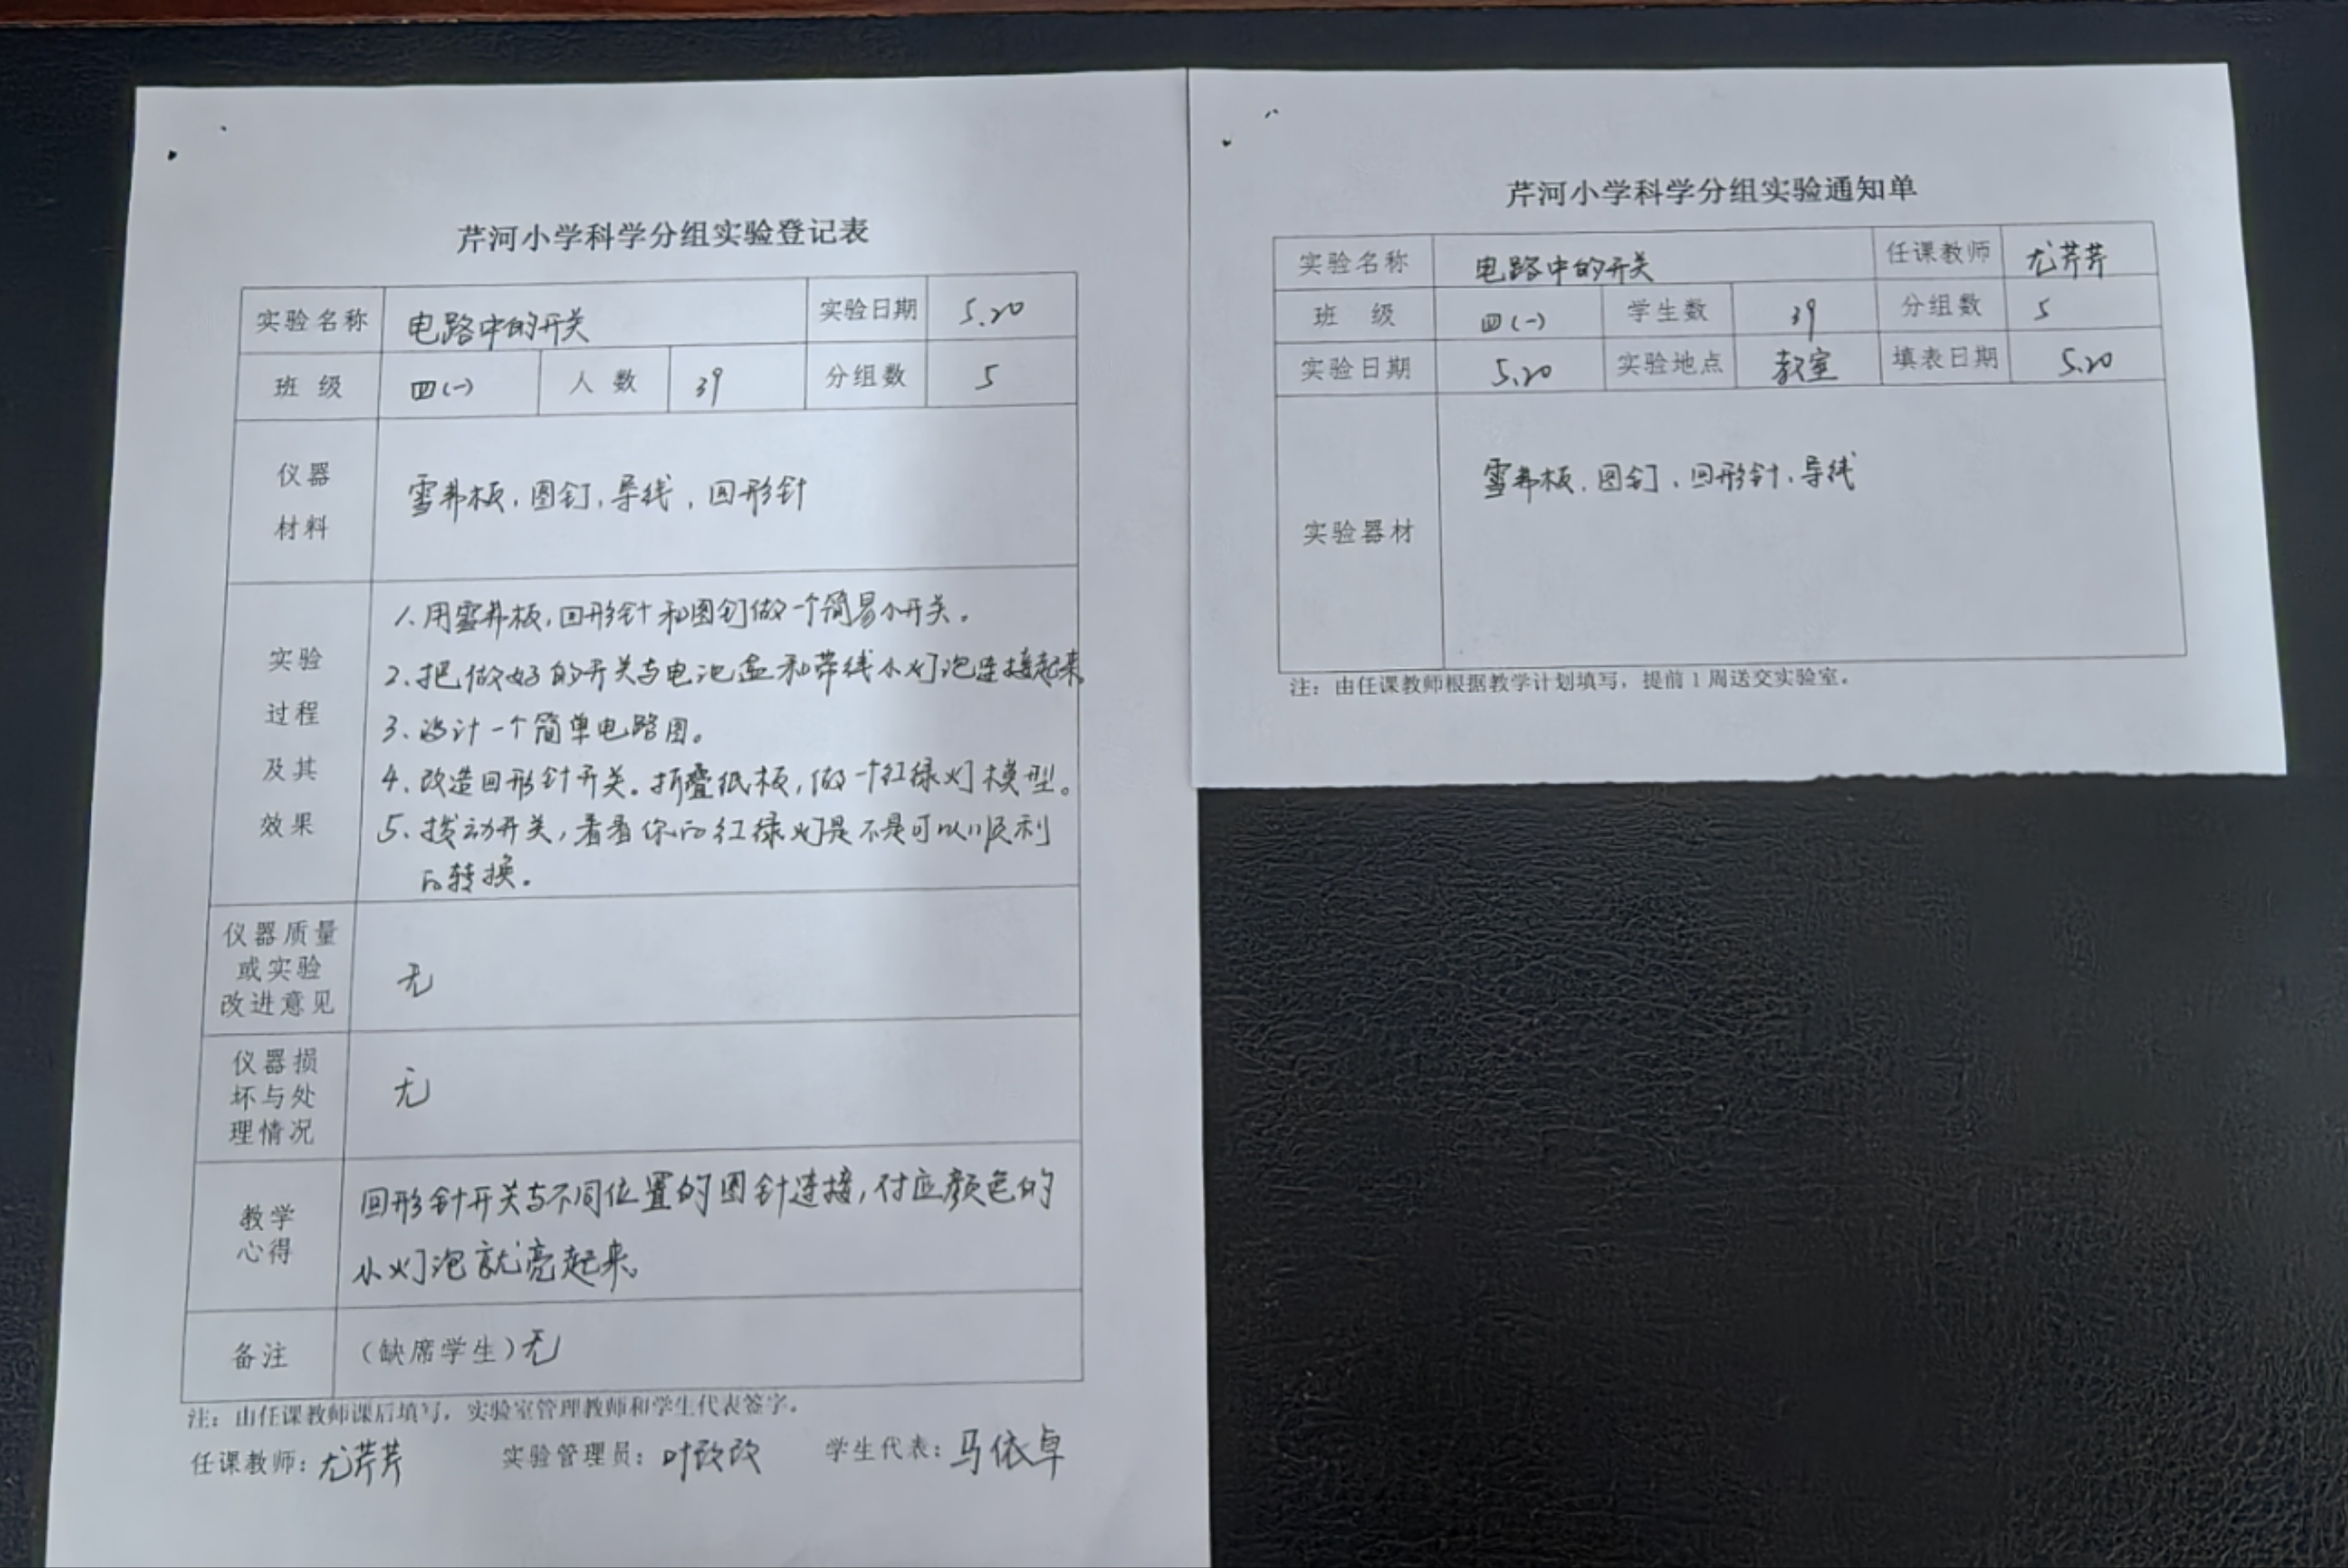 芹河小学科学分组实验登记表
实验名称 电路中的开关 实验日期 5.20
班 级 四(一) 人 数 39 分组数 5
仪器
材料
雪弗板、图钉、导线、回形针
实验
过程
及其
效果
1、用雪弗板,回形针和图钉做一个简易小开关。
2、把做好的开关与电池盒和带线小灯泡连接起来。
3、设计一个简单电路图。
4、改造回形针开关。折叠纸板,做一个红绿灯模型。
5、拨动开关,看看你的红绿灯是不是可以顺利
的转换。
仪器质量
或实验
改进意见
无
仪器损
坏与处
理情况
无
教学
心得
回形针开关与不同位置的图针连接,对应颜色的
小灯泡就亮起来。
备注 (缺席学生)无
注:由任课教师课后填写,实验室管理教师和学生代表签字。
任课教师:尤芹芹 实验管理员:叶改改 学生代表:马依卓
芹河小学科学分组实验通知单
实验名称 电路中的开关 任课教师 尤芹芹
班 级 四(一) 学生数 39 分组数 5
实验日期 5.20 实验地点 教室 填表日期 5.20
实验器材
雪弗板、图钉、回形针、导线
注:由任课教师根据教学计划填写,提前1周送交实验室。